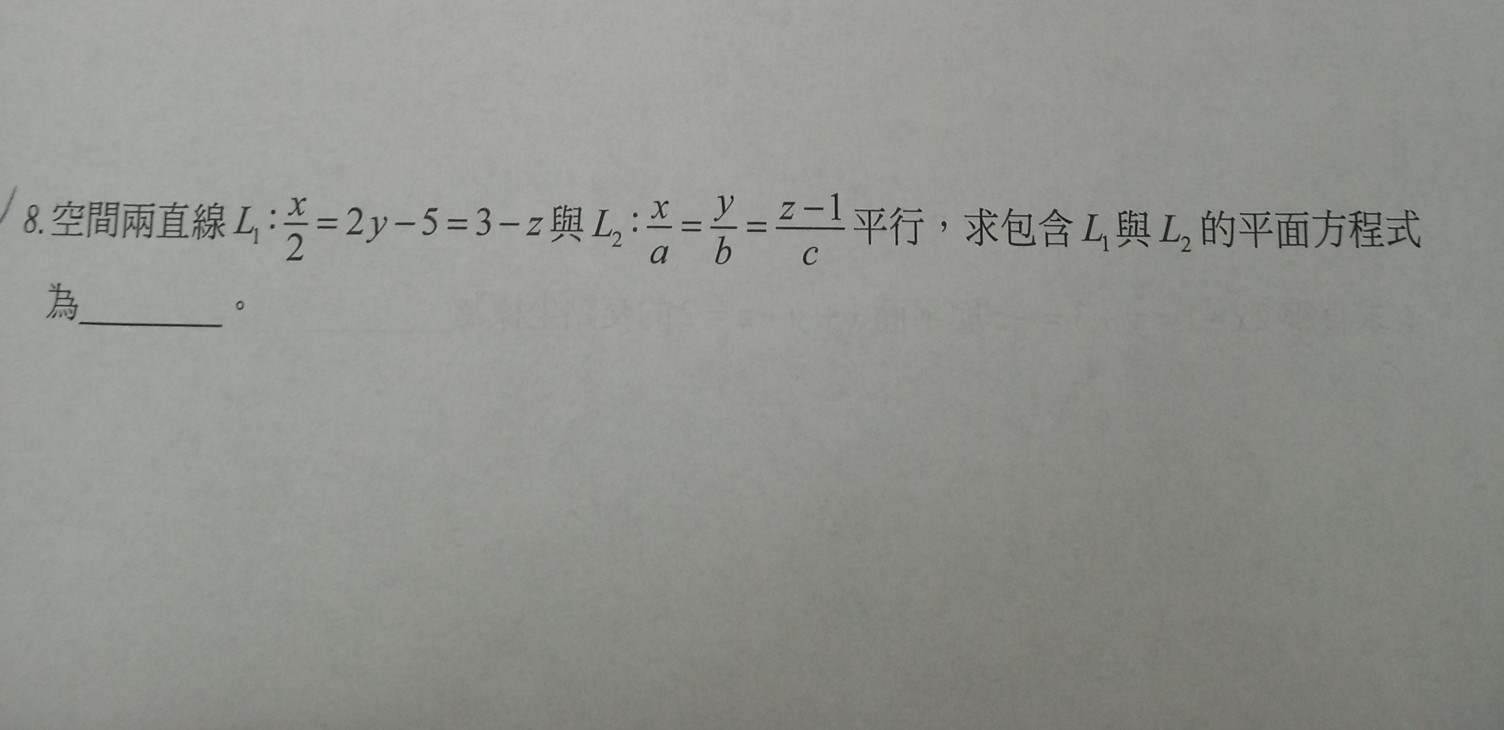 8. 空間兩直線 L₁：x/2 = 2y−5 = 3−z 與 L₂：x/a = y/b = (z−1)/c 平行，求包含 L₁ 與 L₂ 的平面方程式
為________。